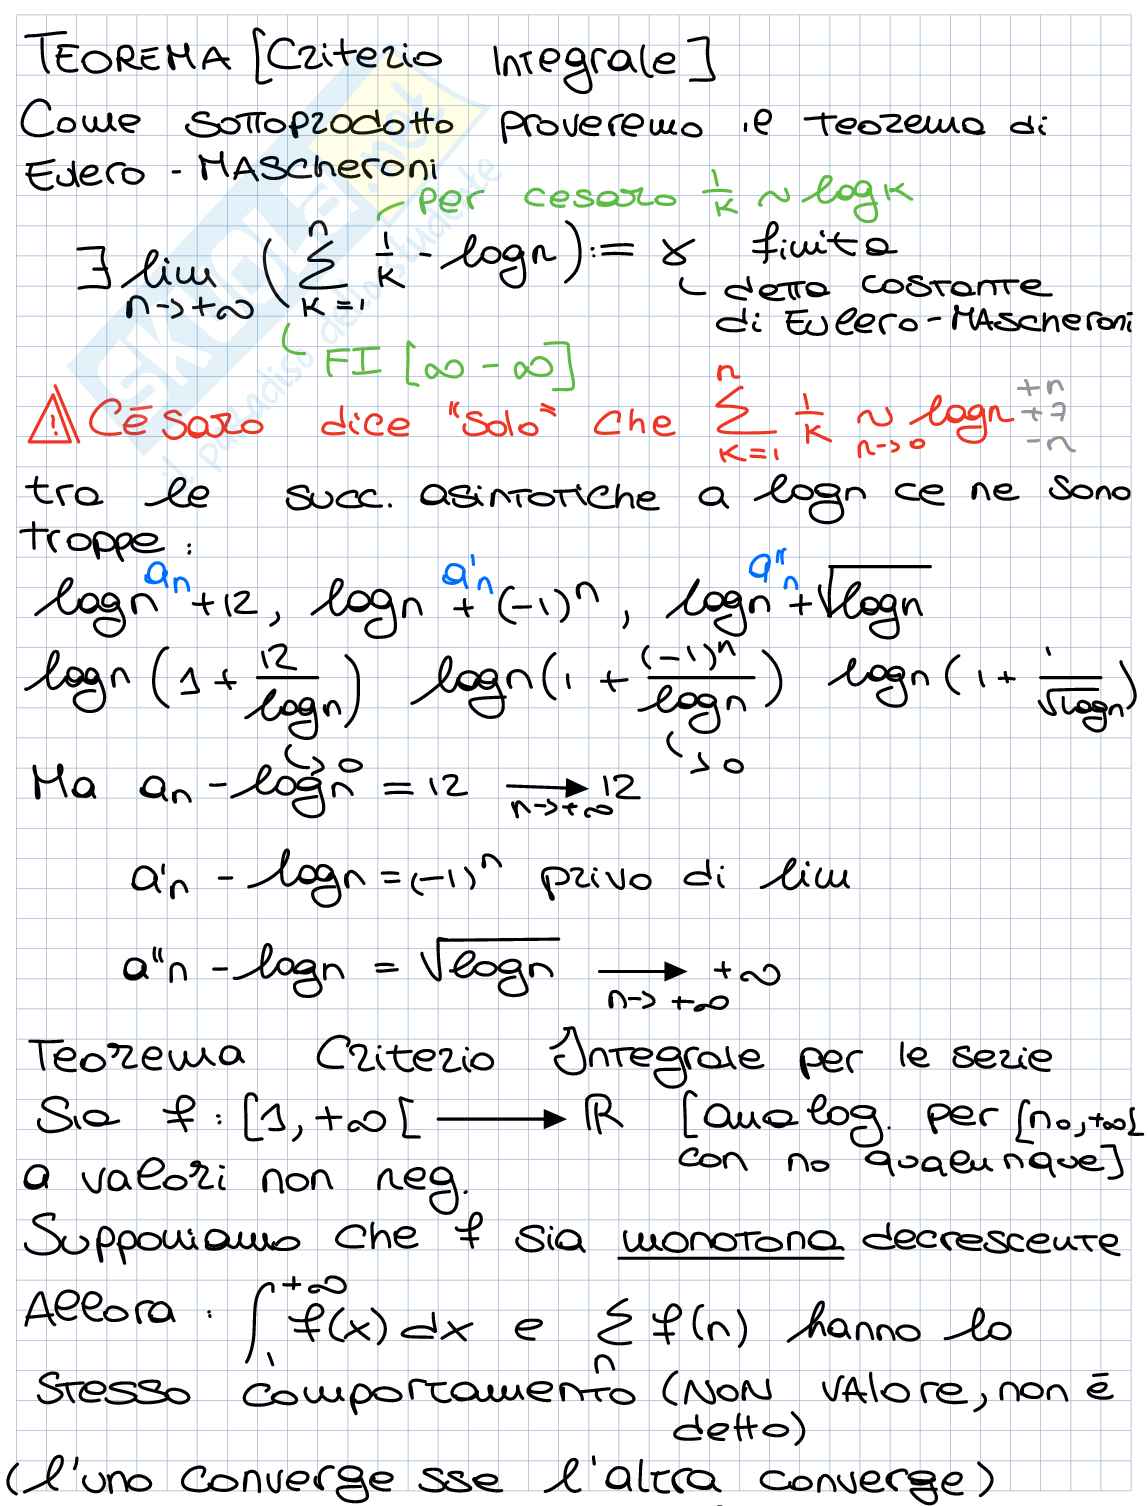 TEOREMA [Criterio Integrale]
Come sottoprodotto proveremo il teorema di
Eulero - MAScheroni
per cesaro 1/k ~ log k
∃ lim_{n→+∞} ( ∑_{k=1}^{n} 1/k - log n ) := γ finito
detta costante
di Eulero - MAScheroni
FI [∞ - ∞]
⚠ Cēsaro dice "solo" che ∑_{k=1}^{n} 1/k ~_{n→0} log n +n +7 -n
tra le succ. asintotiche a log n ce ne sono
troppe:
a_n a'_n a"_n
log n + 12, log n + (-1)^n, log n + √log n
log n (1 + 12/log n) log n (1 + (-1)^n/log n) log n (1 + 1/√log n)
↳ 0 ↳ 0
Ma a_n - log n = 12 →_{n→+∞} 12
a'n - log n = (-1)^n privo di lim
a"n - log n = √log n →_{n→+∞} +∞
Teorema Criterio Integrale per le serie
Sia f: [1, +∞[ → ℝ [analog. per [n₀, +∞[
con n₀ qualunque]
a valori non neg.
Supponiamo che f sia monotona decrescente
Allora: ∫_1^{+∞} f(x) dx e ∑_n f(n) hanno lo
stesso comportamento (NON VALore, non ē
detto)
(l'uno converge sse l'altra converge)
SKUOLA.net
il paradiso dello studente